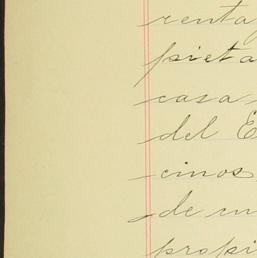 renta
pieta
casa
del E
cinos
de en
propi